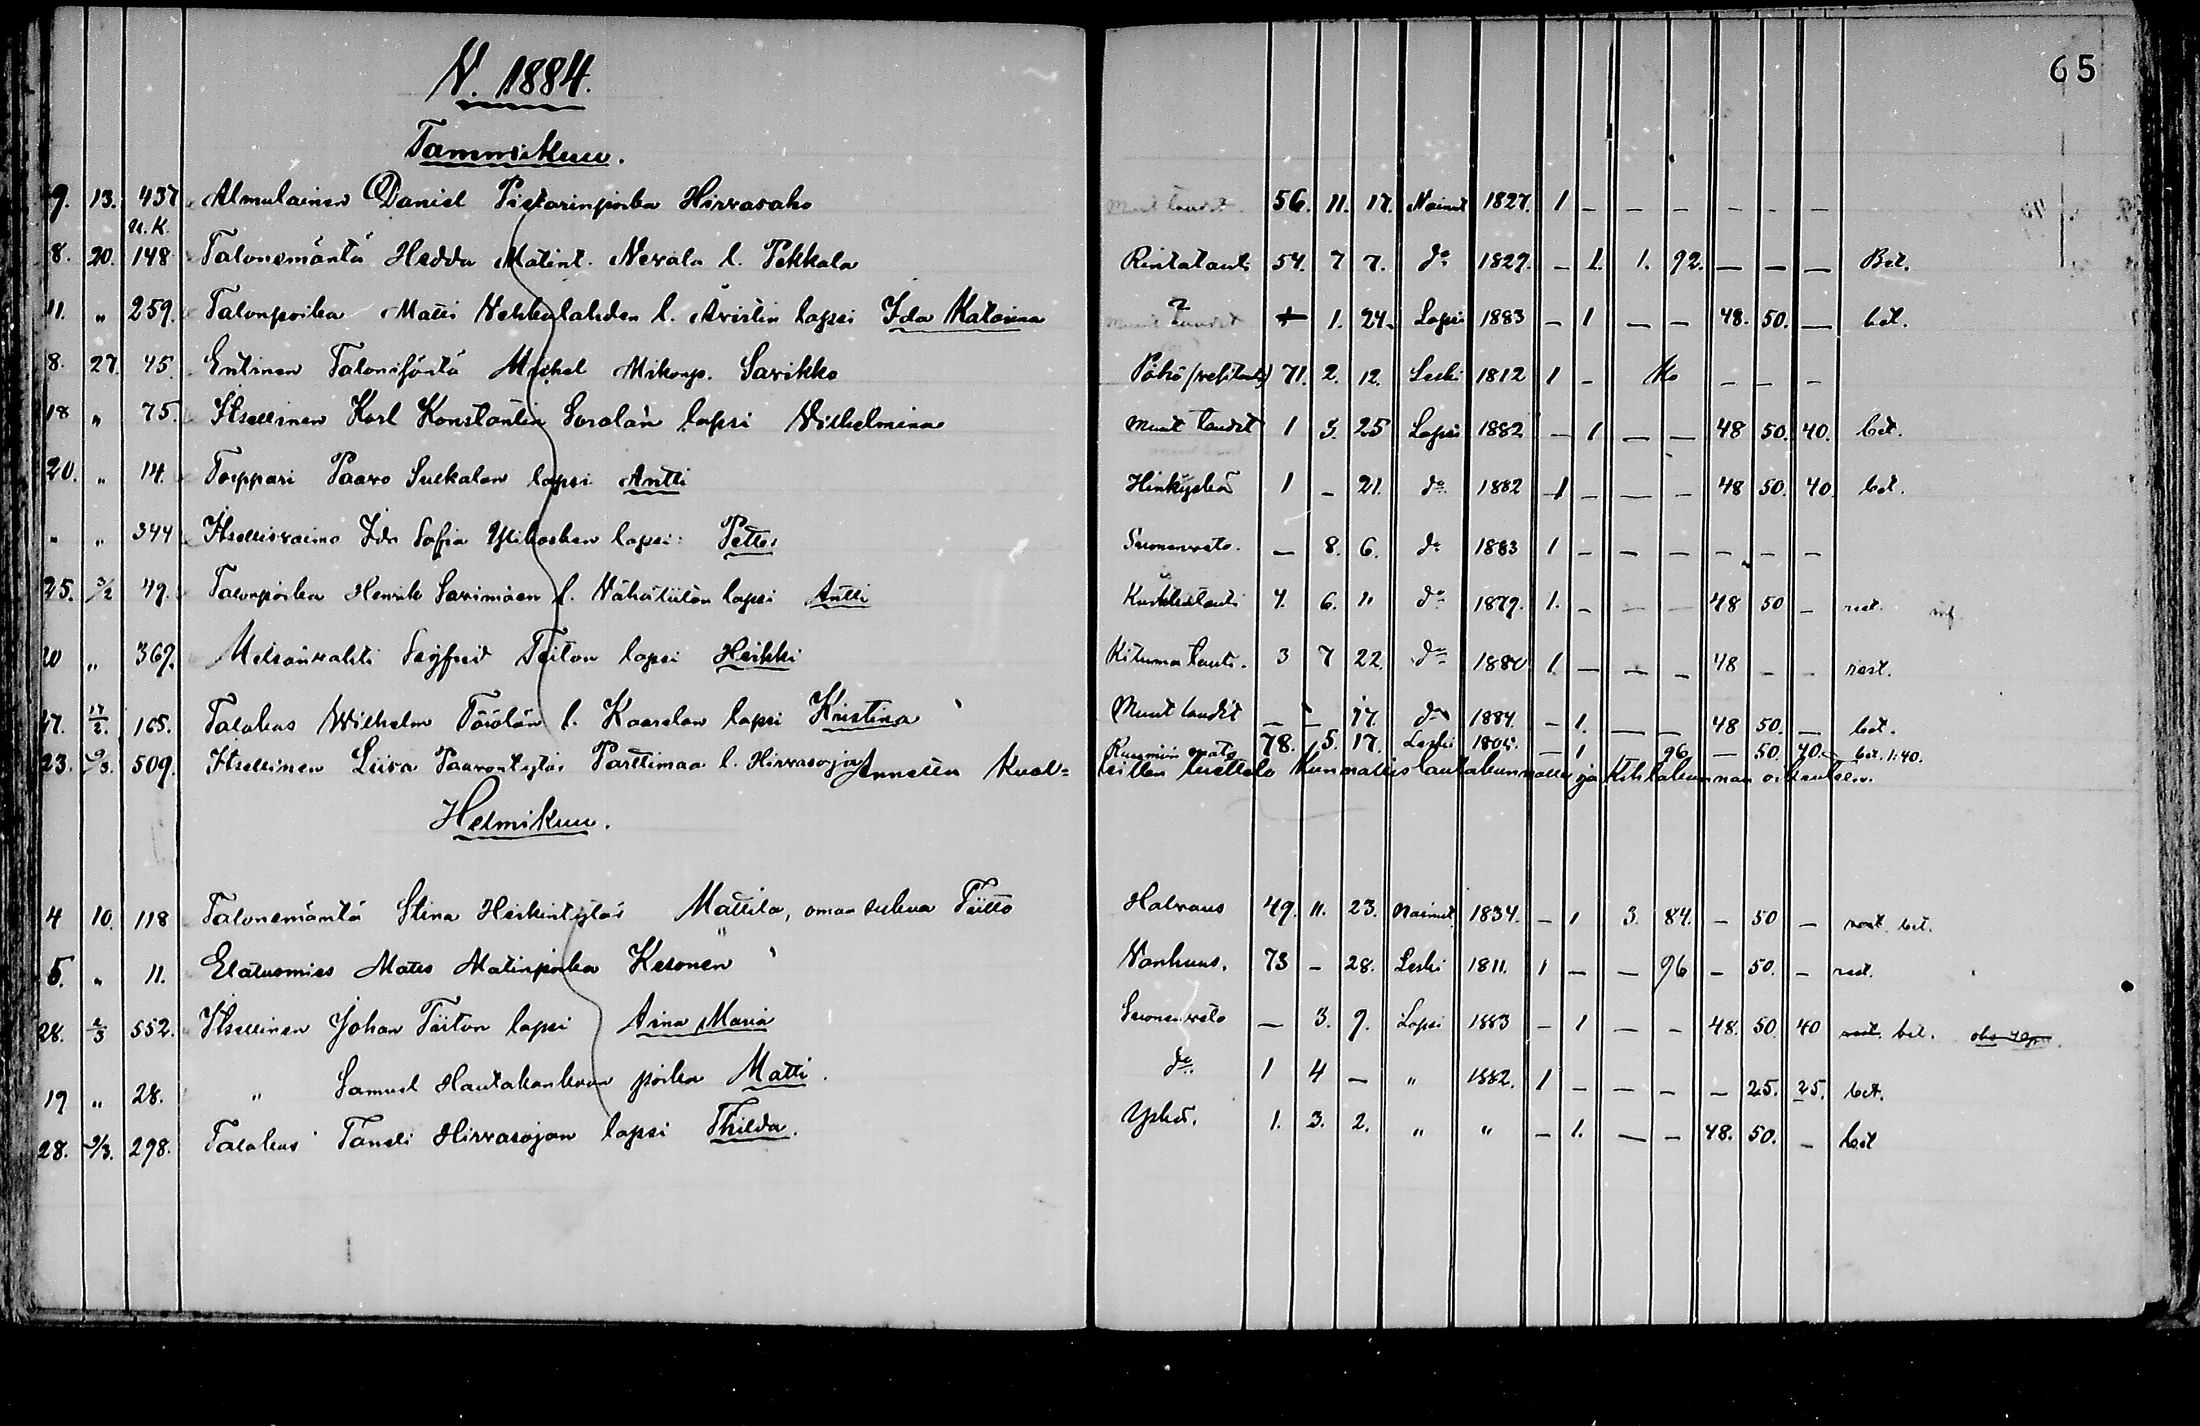 65
V. 1884.
Tammikuu.
9. 13. 437 Almulainen Daniel Pietarinpoika Hirvasaho Muut taudit. 56. 11. 17. Nainut 1827. 1 – – – – – –
u.K.
8. 20. 148 Talonemäntä Hedda Matint. Nevala l. Pekkala Rintatauti 54. 7 7. do 1829. – 1. 1. 92. – – – Bet.
11. „ 259. Talonpoika Matti Vehkalahden l. lapsi Ida Katarina Muut taudit 1. 24. Lapsi 1883 – 1 – – 48. 50. – bet.
8. 27. 45. Entinen Talonisäntä Michel Mikonp. Sarikko Pöhö (vesitauti) 71. 2. 12. Leski 1812 1 – – – –
18 „ 75. Itsellinen Karl Konstantin Soralan lapsi Wilhelmina Muut taudit 1 3. 25 Lapsi 1882 – 1 – – 48 50. 40. bet.
20. „ 14. Torppari Paavo Suckalan lapsi Antti Hinkuyskä 1 – 21. do 1882 1 – – – 48 50. 40. bet.
„ „ 344 Itsellisvaimo Ida Sofia Ylikosken lapsi: Petter Suonenveto. – 8. 6. do 1883 1 – – – – – –
25. 3/2 49. Talonpoika Henrik Sarimäen l. Vähätiiton lapsi Antti Kurkkutauti 4. 6. 11 do 1879. 1. – – – 48 50 – rest.
20 „ 369. Metsänvahti Segfrid Tiiton lapsi Heikki Kituma tauti. 3 7 22. do 1880 1 – – – 48 – – rest.
17/2. 165. Talokas Wilhelm Töiölän l. Kaarelan lapsi Kristina Muut taudit – – 17. do 1884. – 1. – – 48 50. – bet.
23. 9/3. 509. Itsellinen Liisa Paavontytär Parttimaa l. Hirvasoja Ruumiin 78. 5. 17. Leski 1805. – 1 96 – 50. 40. bet. 1:40.
Annettu Kuol= leitten luettelo Kunnallislautakunnalle ja Kihlakunnan oikeuteen.
Helmikuu.
4 10. 118 Talonemäntä Stina Heikintytär Mattila, omaa sukua Tiitto Halvaus 49. 11. 23. Nainut 1834. – 1 3. 84. – 50 – rest. bet.
5. „ 11. Elatusmies Mats Matinpoika Kesonen Vanhuus. 73 – 28. Leski 1811. 1 – – 96 – 50. – rest.
28. 2/3 552. Itsellinen Johan Tiiton lapsi Aina Maria Suonenveto – 3. 9. Lapsi 1883 – 1 – – 48. 50. 40 rest. bet.
19 „ 28. „ Samuel Hautakankaan poika Matti. do 1 4 – „ 1882. 1 – – – – 25. 25. bet.
28. 9/3. 298. Talokas Taneli Hirvasojan lapsi Thilda. Yskä. 1. 3. 2. „ „ – 1. – – 48. 50. – bet